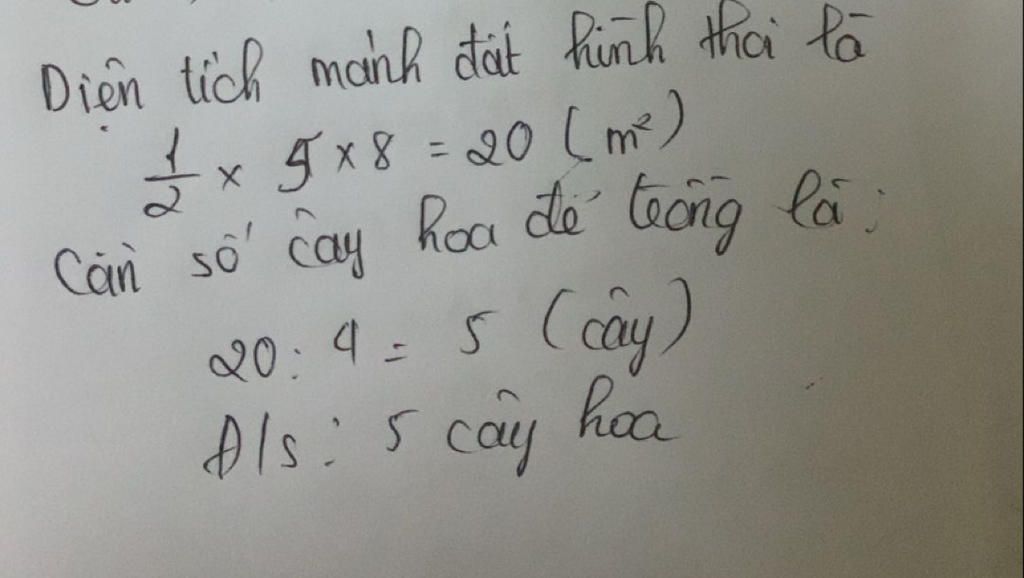 Diện tích mảnh đất hình thoi là
1/2 × 5 × 8 = 20 (m²)
Cần số cây hoa để trồng là:
20 : 4 = 5 (cây)
Đ/s: 5 cây hoa